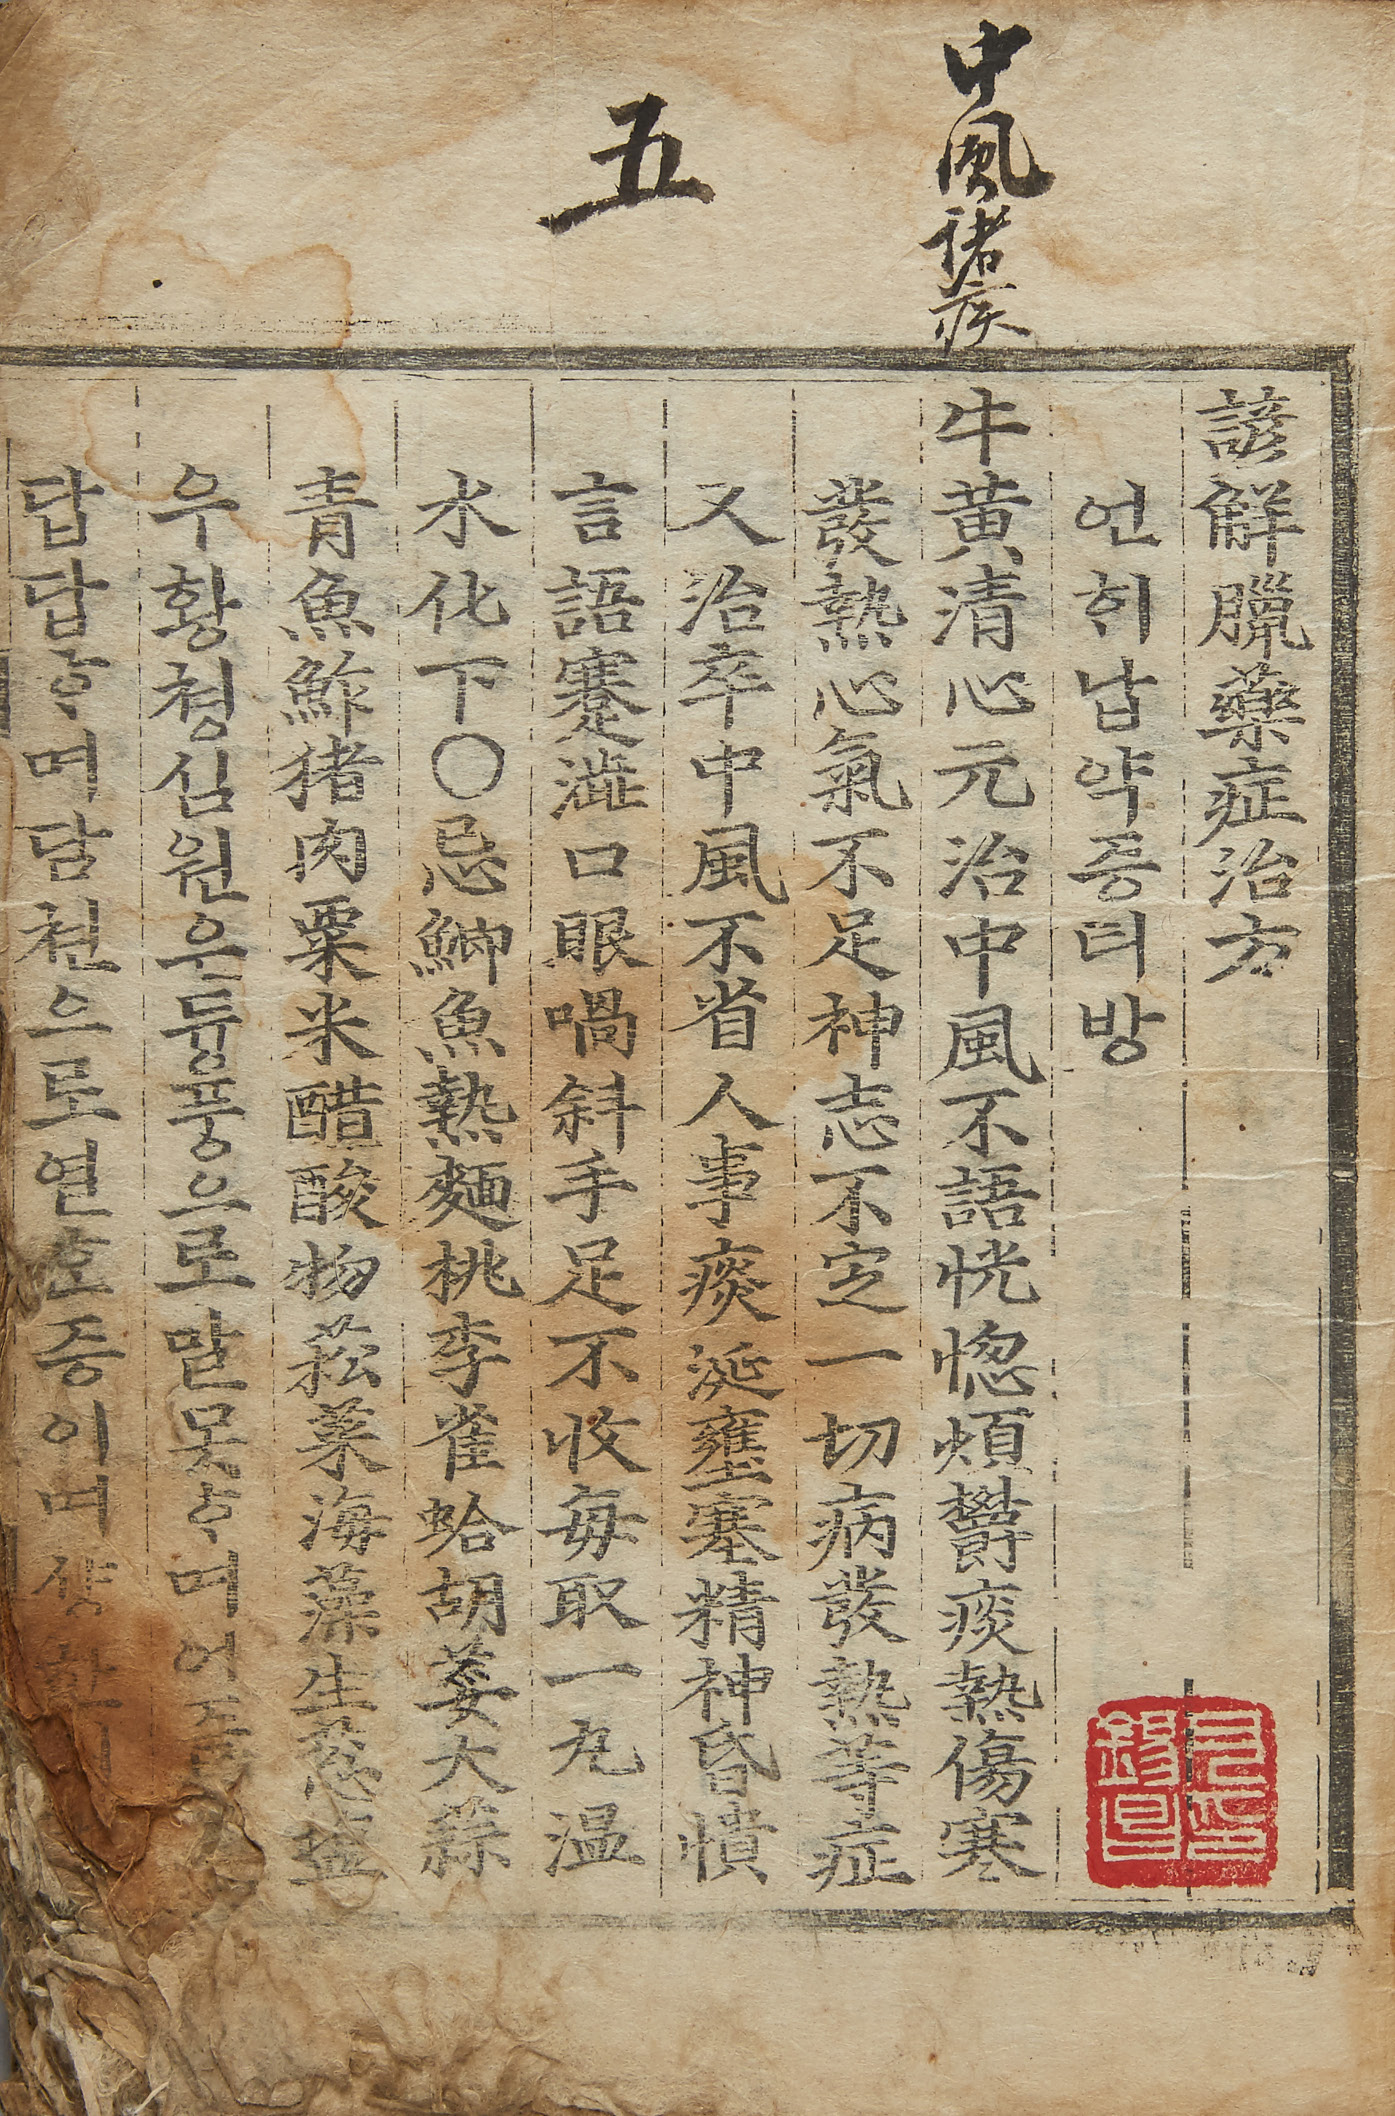 五
中風諸疾
諺解臘藥症治方
언ᄒᆡ납약증티방
牛黃清心元治中風不語恍惚煩鬱痰熱傷寒
發熱心氣不足神志不定一切病發熱等症
又治卒中風不省人事痰涎壅塞精神昏憒
言語蹇澁口眼喎斜手足不收每取一丸温
水化下○忌鯽魚熱麵桃李雀蛤胡荽大蒜
青魚鮓猪肉粟米醋酸物菘菜海藻生葱
우황쳥심원은듕풍으로말못ᄒᆞ며어
답답ᄒᆞ며담쳔으로열ᄒᆞᆫ증이며샹한